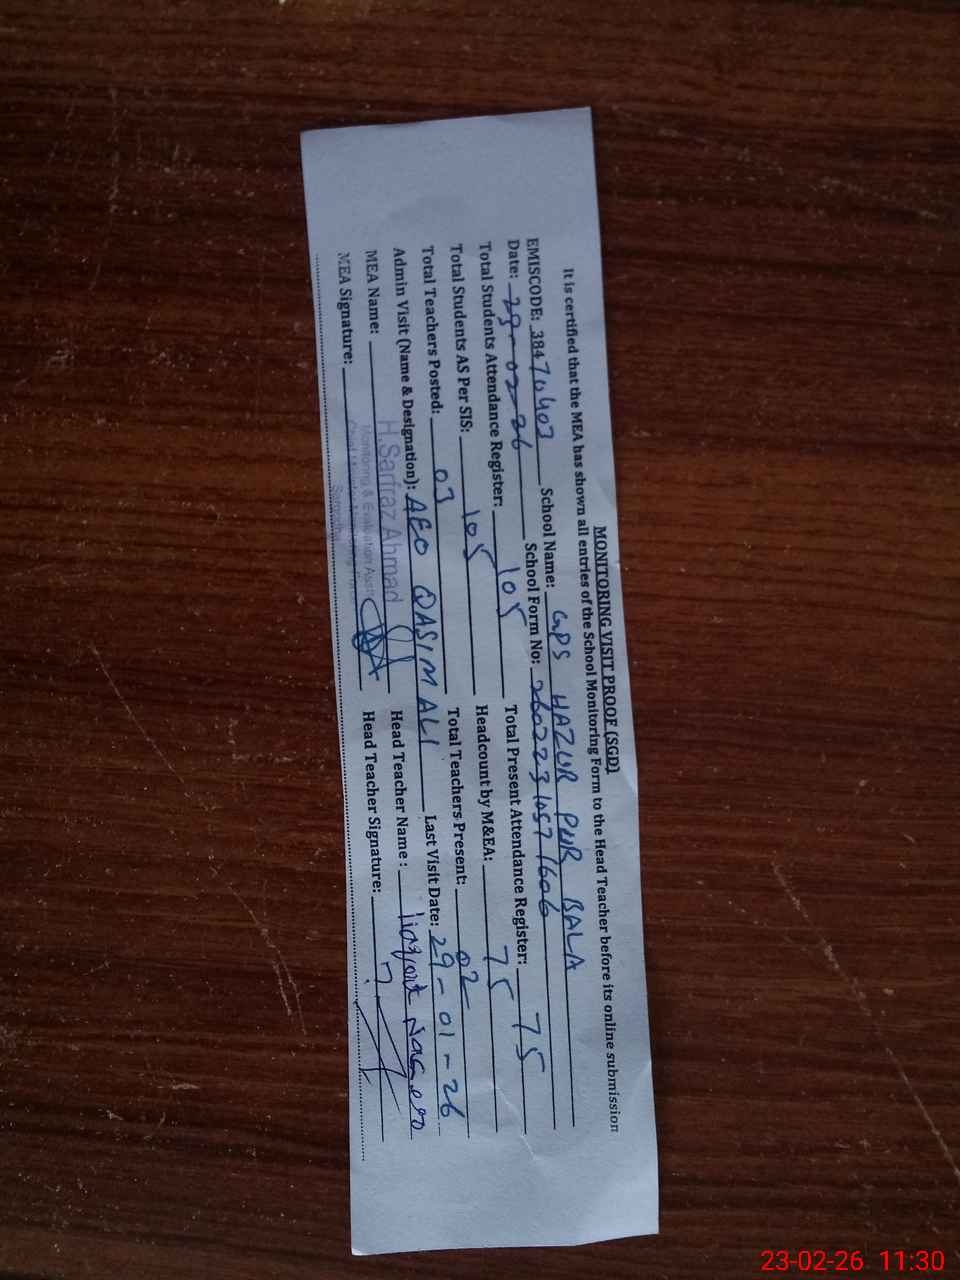 MONITORING VISIT PROOF (SGD)
It is certified that the MEA has shown all entries of the School Monitoring Form to the Head Teacher before its online submission
EMISCODE: 38470403 School Name: GPS HAZUR PUR BALA
Date: 23-02-26 School Form No: 26022310571606
Total Students Attendance Register: 105 Total Present Attendance Register: 75
Total Students AS Per SIS: 105 Headcount by M&EA: 75
Total Teachers Posted: 03 Total Teachers Present: 02
Admin Visit (Name & Designation): AEO QASIM ALI Last Visit Date: 29-01-26
MEA Name: H.Sarfraz Ahmad Head Teacher Name:
Monitoring & Evaluation
MEA Signature: Head Teacher Signature:
23-02-26 11:30